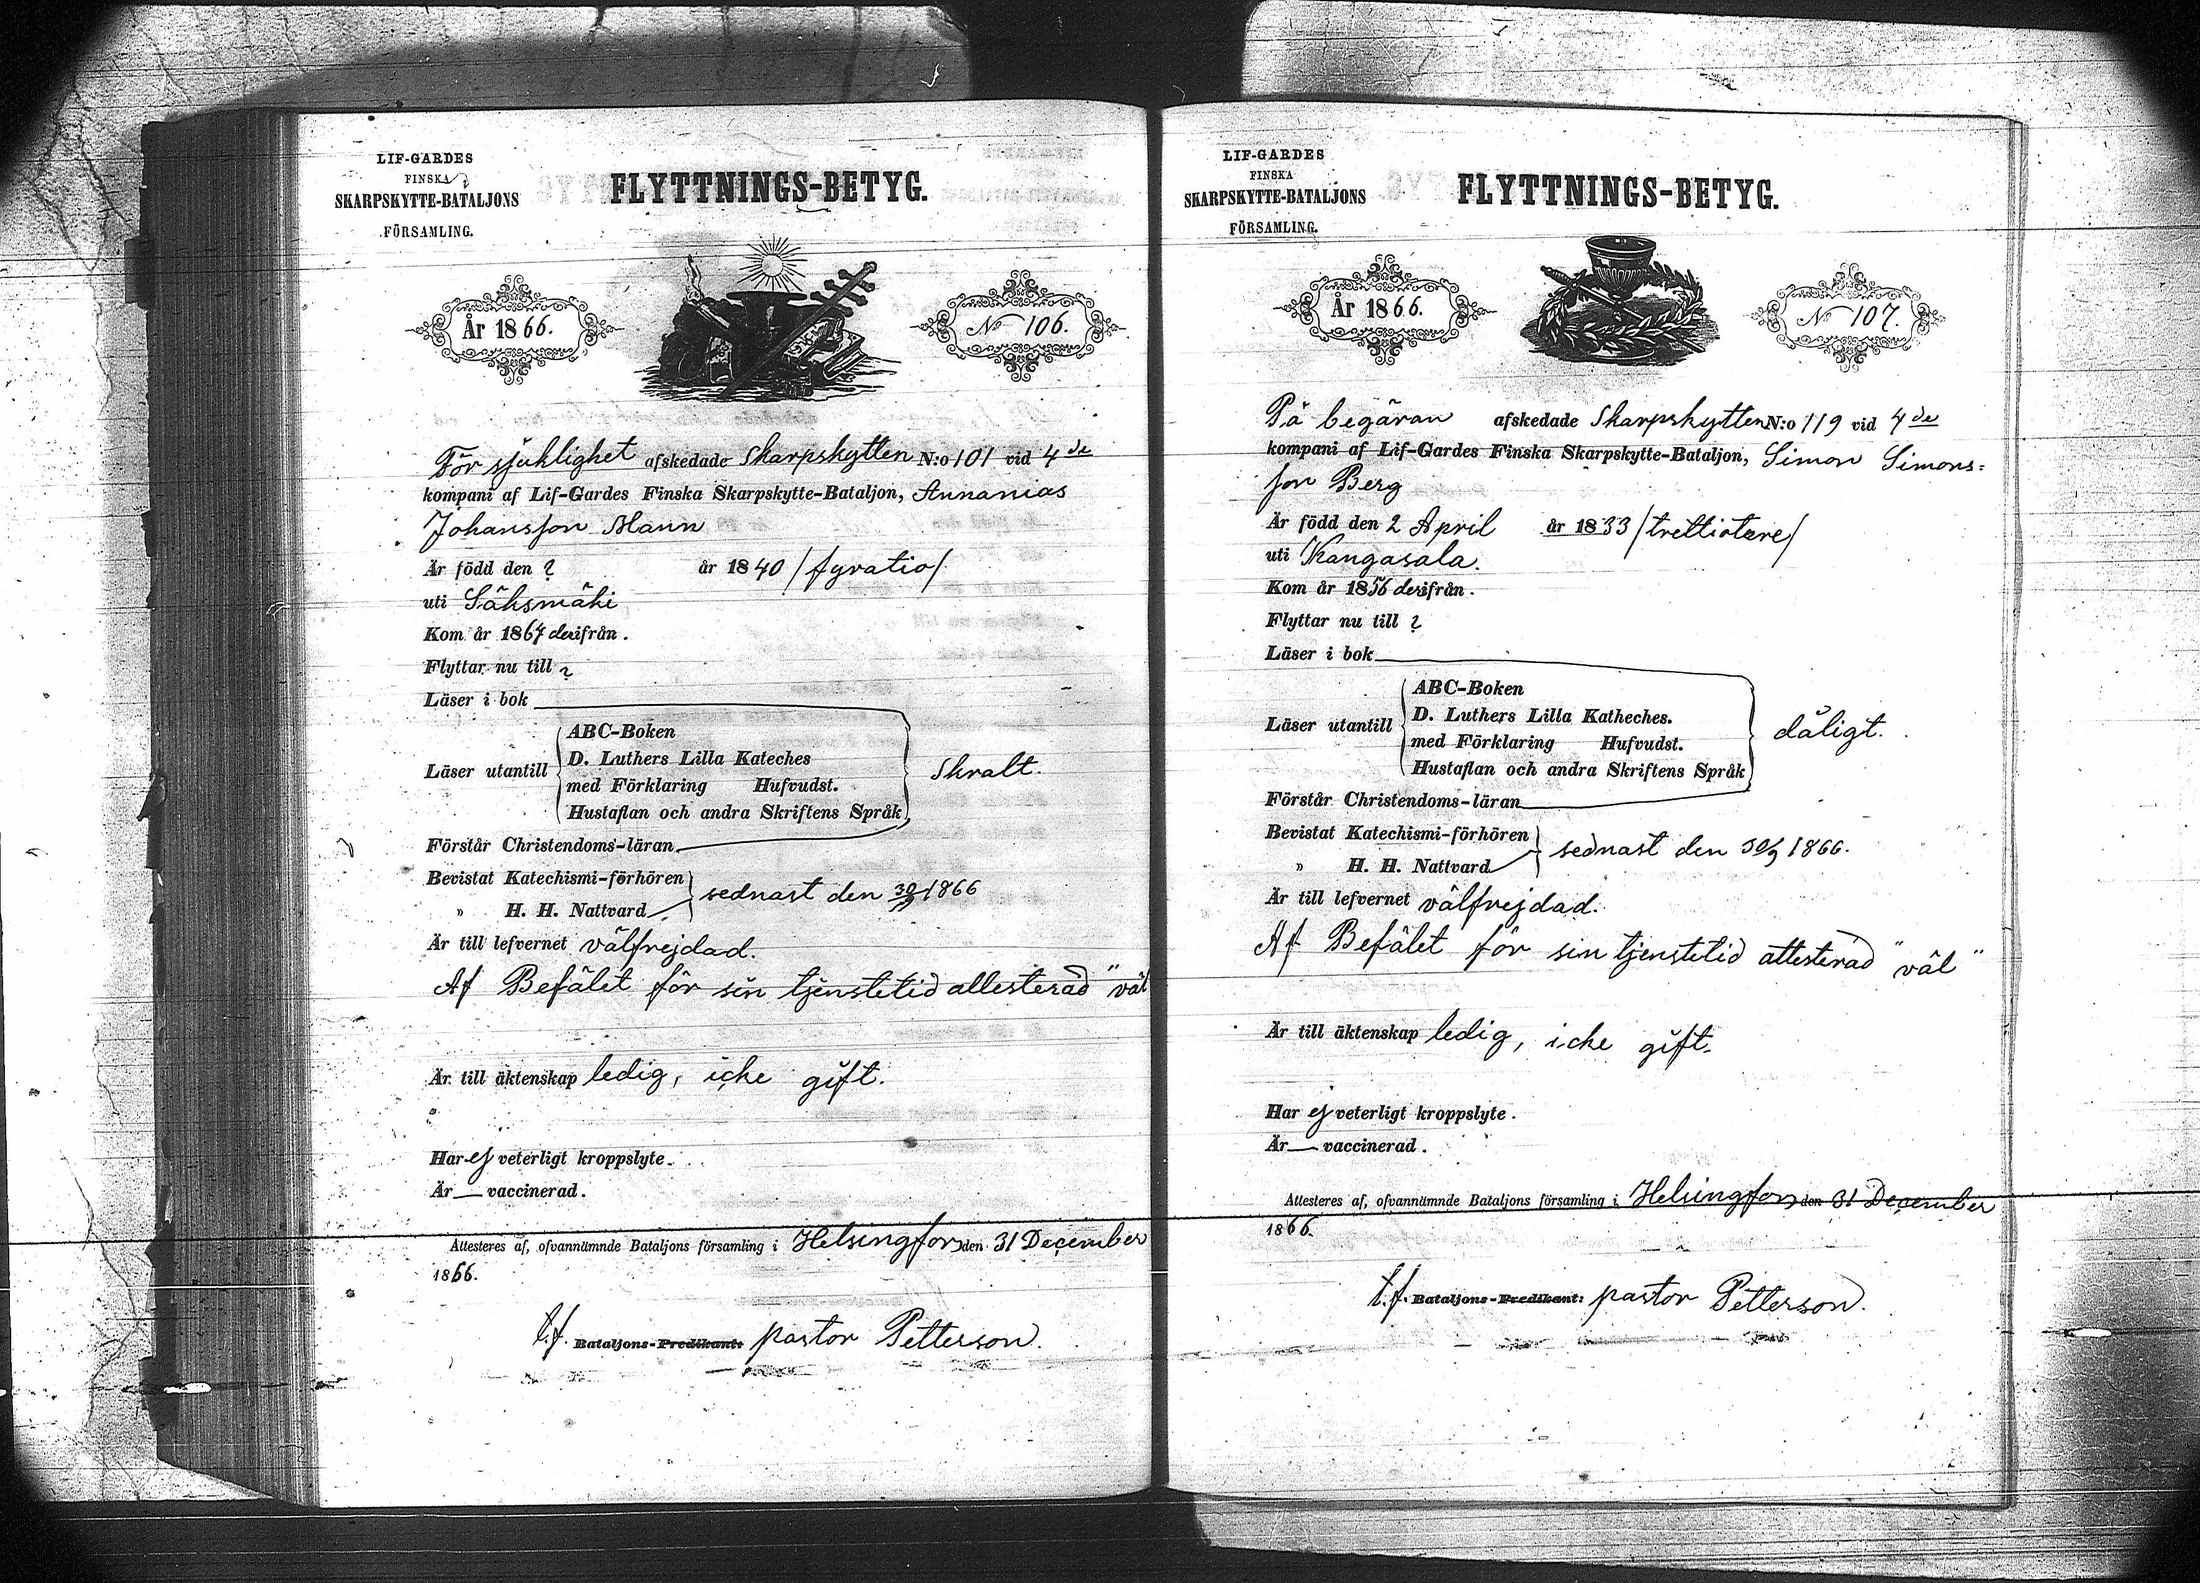 LIF-GARDES
FINSKA
SKARPSKYTTE-BATALJONS
FÖRSAMLING.
FLYTTNINGS-BETYG.
År 1866.
No 106.
För sjuklighet afskedade Skarpskytten N:o 101 vid 4de
kompani af Lif-Gardes Finska Skarpskytte-Bataljon, Annanias
Johansson Mann
Är född den ? år 1840 /fyratio/
uti Sääksmäki
Kom år 1864 derifrån.
Flyttar nu till ?
Läser i bok
Läser utantill
ABC-Boken
D. Luthers Lilla Kateches
med Förklaring Hufvudst.
Hustaflan och andra Skriftens Språk
Skralt.
Förstår Christendoms-läran
Bevistat Katechismi-förhören
" H. H. Nattvard
sednast den 30/9 1866
Är till lefvernet välfrejdad.
Af Befälet för sin tjenstetid attesterad "väl
Är till äktenskap ledig, icke gift.
Har ej veterligt kroppslyte.
Är — vaccinerad.
Attesteres af, ofvannämnde Bataljons församling i Helsingfors den 31 December
1866.
t.f. Bataljons-Predikant: pastor Petterson.
LIF-GARDES
FINSKA
SKARPSKYTTE-BATALJONS
FÖRSAMLING.
FLYTTNINGS-BETYG.
År 1866.
No 107.
På begäran afskedade Skarpskytten N:o 119 vid 4de
kompani af Lif-Gardes Finska Skarpskytte-Bataljon, Simon Simons=
son Berg
Är född den 2 April år 1833 /trettiotre/
uti Kangasala.
Kom år 1856 derifrån.
Flyttar nu till ?
Läser i bok
Läser utantill
ABC-Boken
D. Luthers Lilla Katheches.
med Förklaring Hufvudst.
Hustaflan och andra Skriftens Språk
dåligt.
Förstår Christendoms-läran
Bevistat Katechismi-förhören
" H. H. Nattvard
sednast den 30/9 1866.
Är till lefvernet välfrejdad.
Af Befälet för sin tjenstetid attesterad "väl"
Är till äktenskap ledig, icke gift.
Har ej veterligt kroppslyte.
Är — vaccinerad.
Attesteres af, ofvannämnde Bataljons församling i Helsingfors den 31 December
1866.
t.f. Bataljons-Predikant: pastor Petterson.